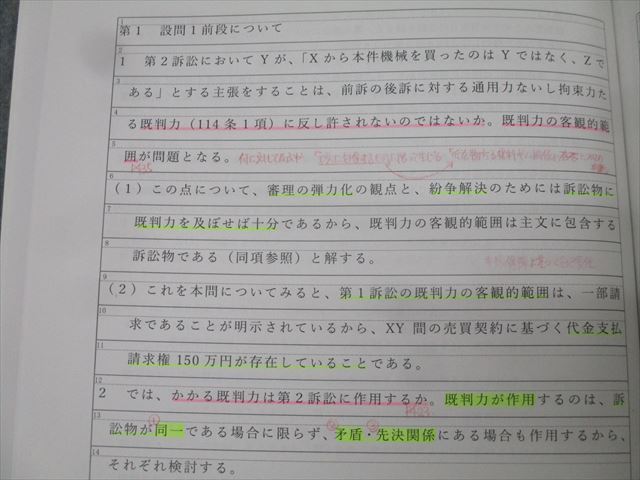 1
第1 設問1前段について
2
1 第2訴訟においてYが、「Xから本件機械を買ったのはYではなく、Zで
3
ある」とする主張をすることは、前訴の後訴に対する通用力ないし拘束力た
4
る既判力(114条1項)に反し許されないのではないか。既判力の客観的範
5
囲が問題となる。
6
(1)この点について、審理の弾力化の観点と、紛争解決のためには訴訟物に
7
既判力を及ぼせば十分であるから、既判力の客観的範囲は主文に包含する
8
訴訟物である(同項参照)と解する。
9
(2)これを本問についてみると、第1訴訟の既判力の客観的範囲は、一部請
10
求であることが明示されているから、XY間の売買契約に基づく代金支払
11
請求権150万円が存在していることである。
12
2 では、かかる既判力は第2訴訟に作用するか。既判力が作用するのは、訴
13
訟物が同一である場合に限らず、矛盾・先決関係にある場合も作用するから、
14
それぞれ検討する。